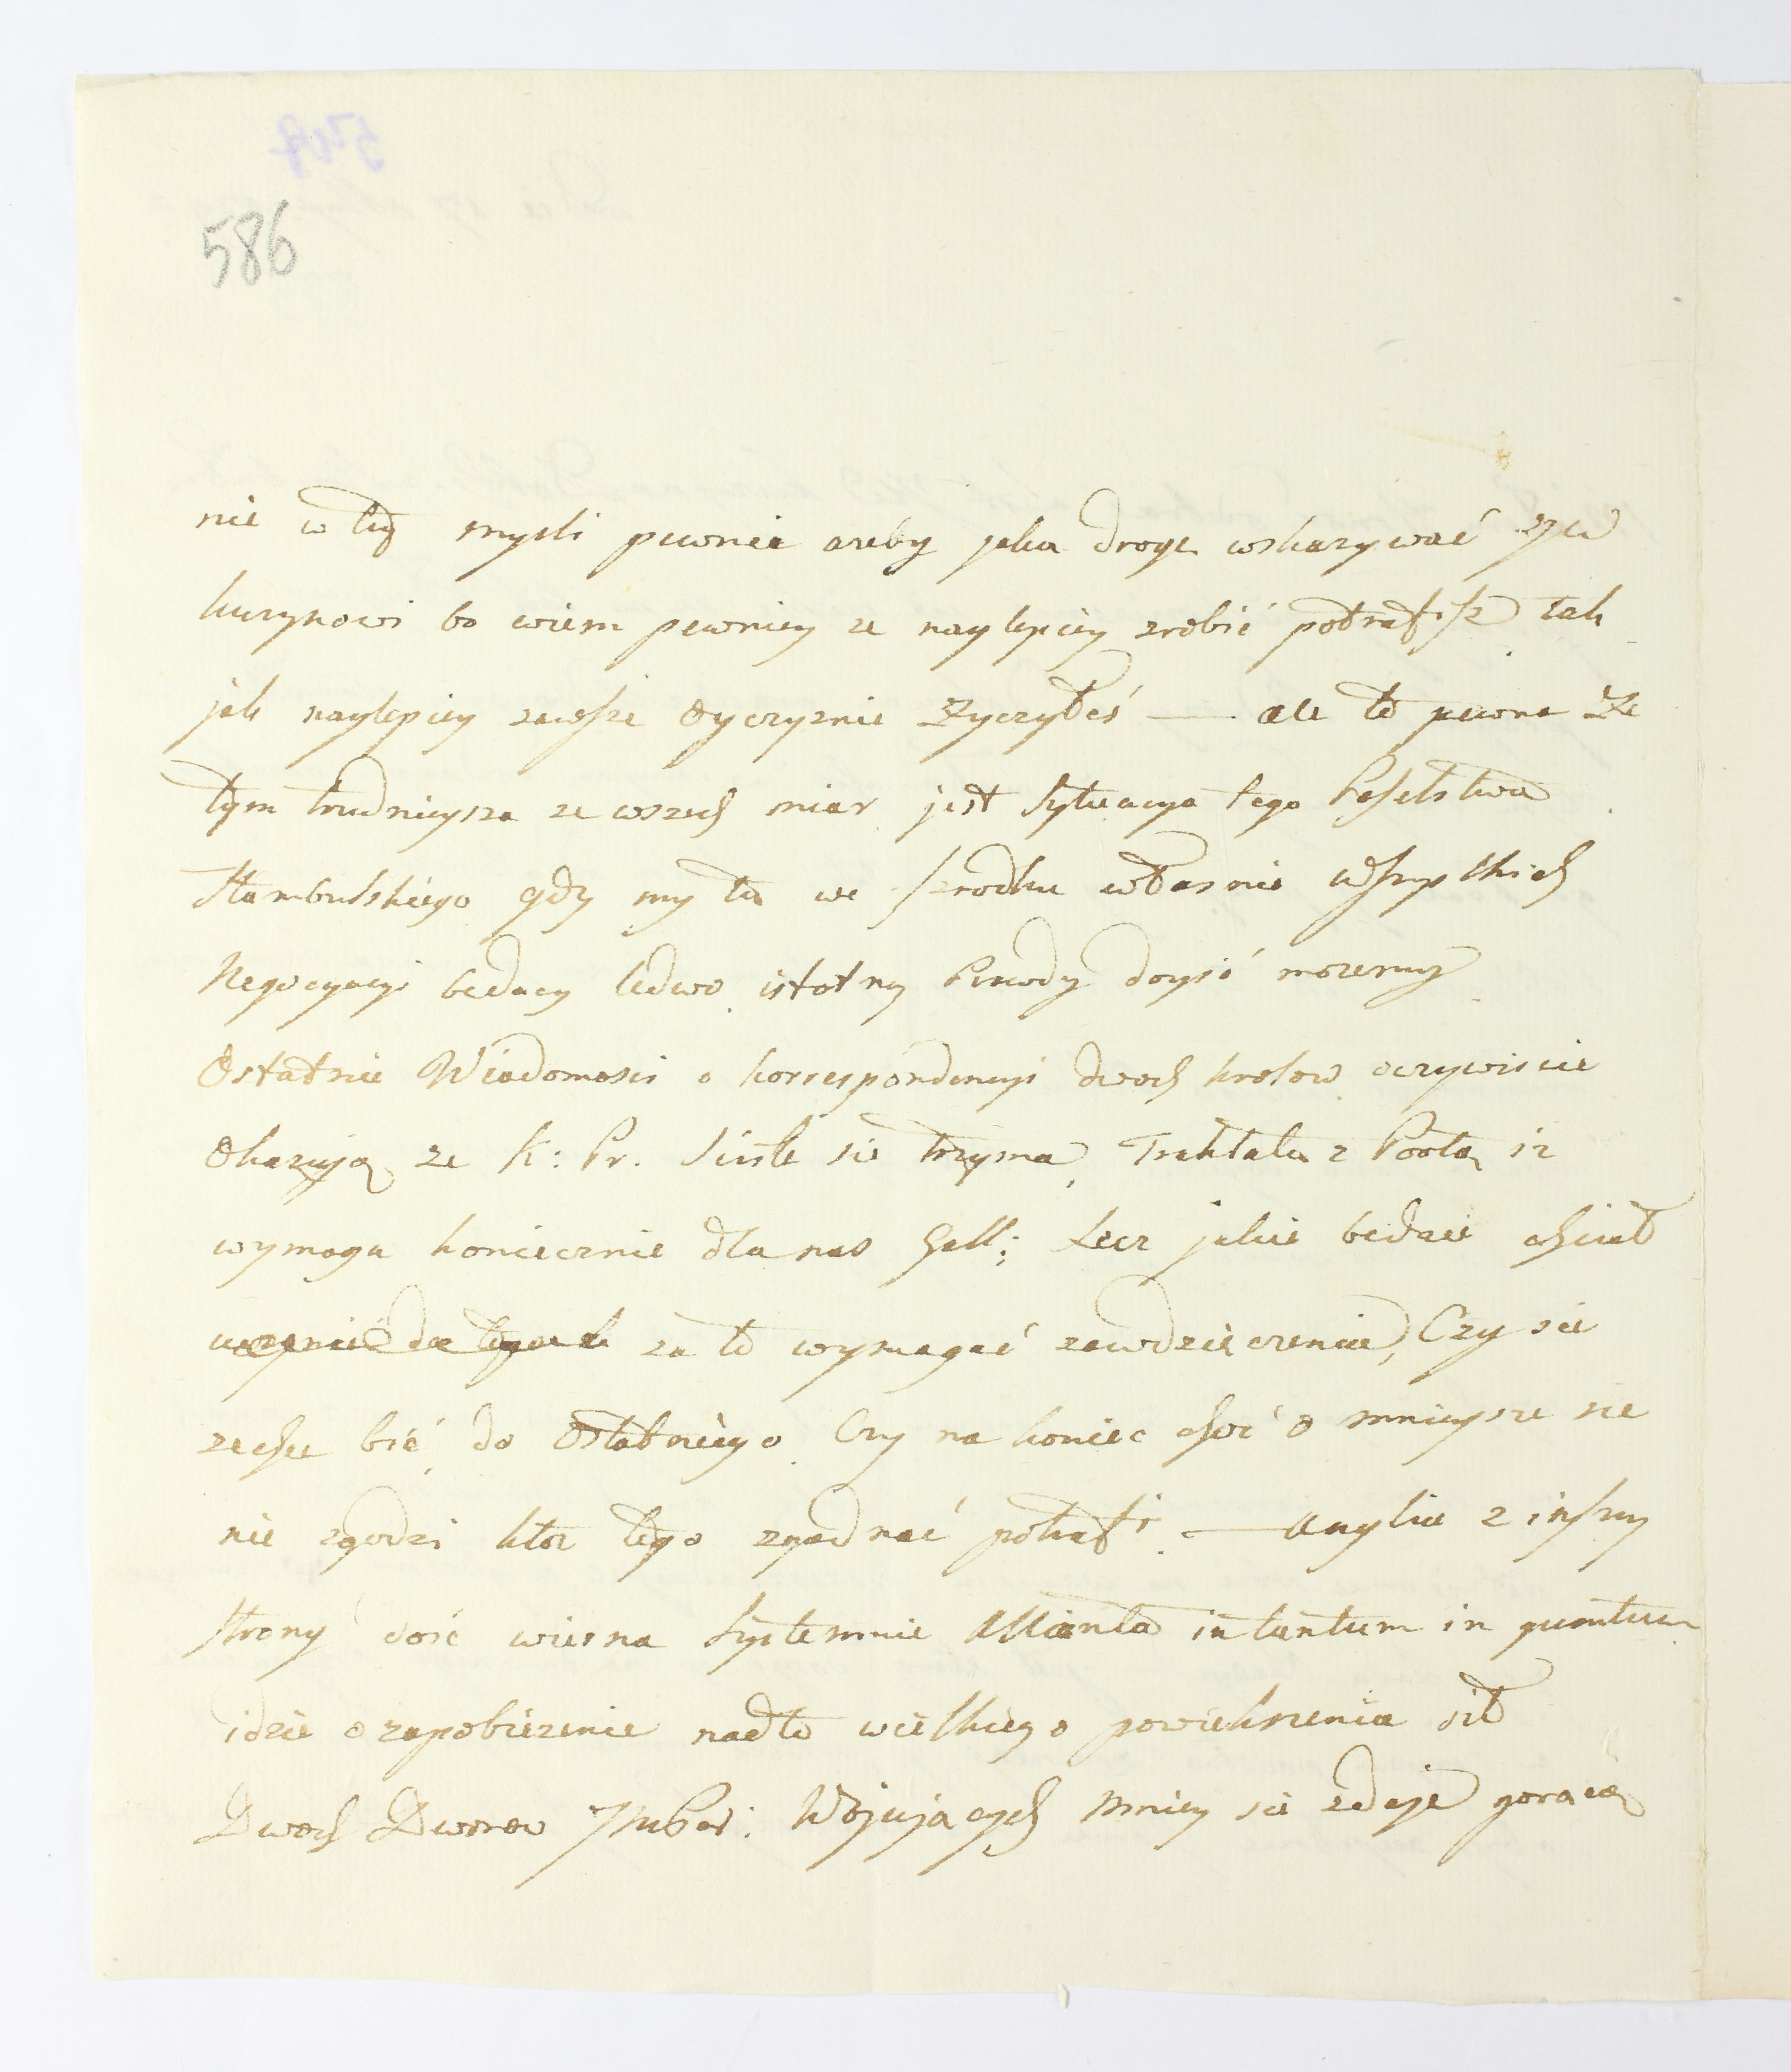 586
nie w tey mysli pewnie azeby jaka droge wskazywać JW
kuzynowi bo wiem pewniey ze naylepiey zrobić potrafisz tak
jak naylepiey zawsze Oyczyznie Zyczyłeś — ale to pewna Ze
tym trudnieysza ze wszech miar jest Sytuacya tego Poselstwa
Stambulskiego gdy my tu we szrodku własnie wszystkich
Negocyacyi bedacy ledwo istotny Prawdy doysć mozemy
Ostatnie Wiadomosci o korrespondencyi dwoch krolow oczywiscie
Okazują ze K: Pr. Scisle sie trzyma Traktatu z Portą iz
wymaga koniecznie dla nas Gall: Lecz jakie bedzie chciał
za to wymagać zawdzięczenie, Czy sie
zechce bić do Ostatniego Czy na koniec choć o mnieysze sie
nie zgodzi ktoz tego zgadnać potrafi — Anglia z inszey
strony dość wierna Systemmie Allianta in tantum in quantum
idzie o zapobiezenie nadto wielkiego powiekszenia sił
Dwoch Dworow Wojujacych Mniey sie zdaje goracą